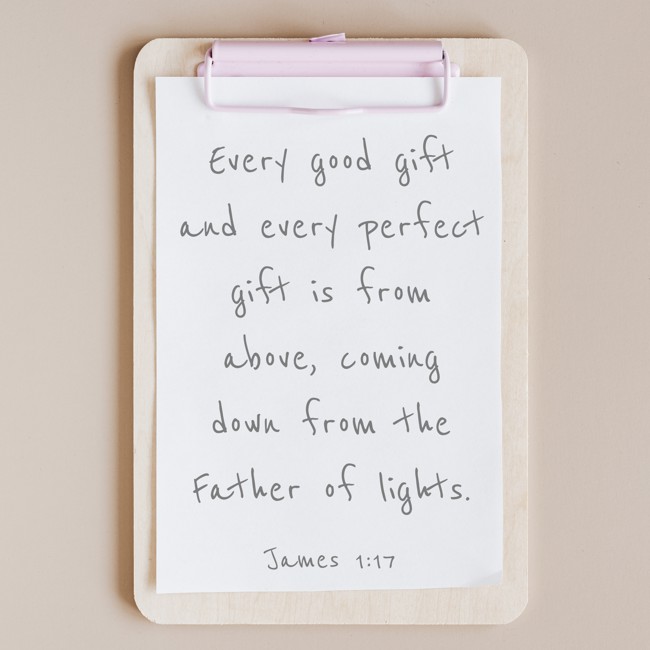 Every good gift
and every perfect
gift is from
above, coming
down from the
Father of lights.
James 1:17